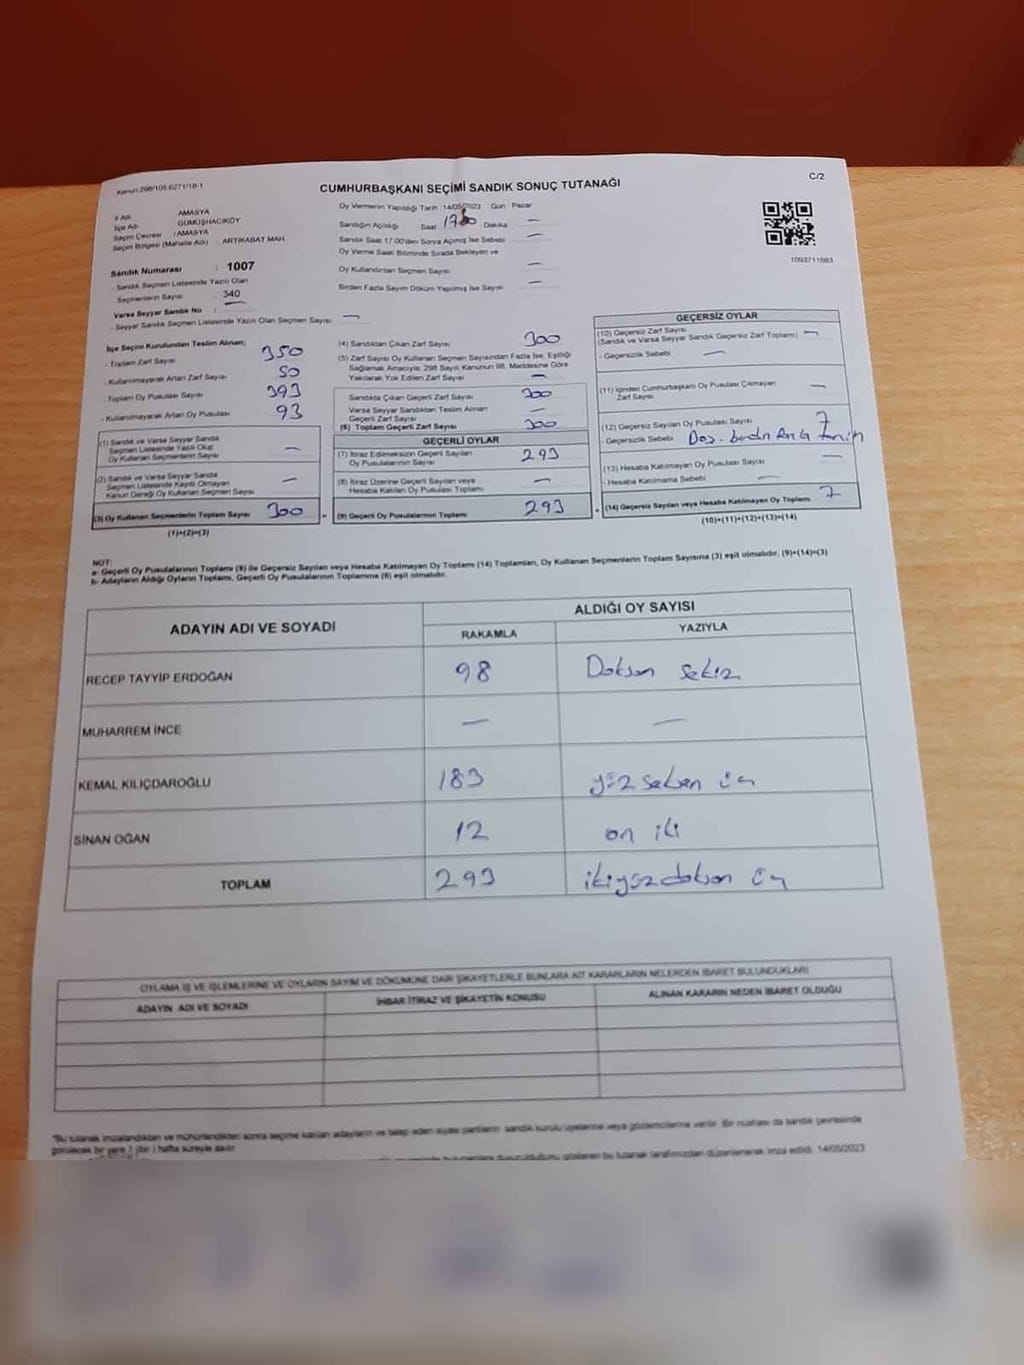 Kanun 298/105 6271/18-1
C/2
CUMHURBAŞKANI SEÇİMİ SANDIK SONUÇ TUTANAĞI
İl Adı : AMASYA
İlçe Adı : GÜMÜŞHACIKÖY
Seçim Çevresi : AMASYA
Seçim Bölgesi (Mahalle Adı) : ARTIKABAT MAH
Sandık Numarası : 1007
- Sandık Seçmen Listesinde Yazılı Olan
Seçmenlerin Sayısı : 340
Varsa Seyyar Sandık No : —
- Seyyar Sandık Seçmen Listesinde Yazılı Olan Seçmen Sayısı : —
Oy Vermenin Yapıldığı Tarih : 14/05/2023 Gün Pazar
Sandığın Açıldığı Saat Dakika —
Sandık Saat 17:00'den Sonra Açılmış İse Sebebi —
Oy Verme Saati Bitiminde Sırada Bekleyen ve
Oy Kullandırılan Seçmen Sayısı —
Birden Fazla Sayım Döküm Yapılmış İse Sayısı —
1093711663
İlçe Seçim Kurulundan Teslim Alınan;
- Toplam Zarf Sayısı 350
- Kullanılmayarak Artan Zarf Sayısı 50
- Toplam Oy Pusulası Sayısı 393
- Kullanılmayarak Artan Oy Pusulası 93
(1) Sandık ve Varsa Seyyar Sandık
Seçmen Listesinde Yazılı Olup
Oy Kullanan Seçmenlerin Sayısı —
(2) Sandık ve Varsa Seyyar Sandık
Seçmen Listesinde Kayıtlı Olmayan
Kanun Gereği Oy Kullanan Seçmen Sayısı —
(3) Oy Kullanan Seçmenlerin Toplam Sayısı 300
(1)+(2)=(3)
(4) Sandıktan Çıkan Zarf Sayısı 300
(5) Zarf Sayısı Oy Kullanan Seçmen Sayısından Fazla İse, Eşitliği
Sağlamak Amacıyla, 298 Sayılı Kanunun 98. Maddesine Göre
Yakılarak Yok Edilen Zarf Sayısı —
Sandıkta Çıkan Geçerli Zarf Sayısı 300
Varsa Seyyar Sandıktan Teslim Alınan
Geçerli Zarf Sayısı —
(6) Toplam Geçerli Zarf Sayısı 300
GEÇERLİ OYLAR
(7) İtiraz Edilmeksizin Geçerli Sayılan
Oy Pusulalarının Sayısı 293
(8) İtiraz Üzerine Geçerli Sayılan veya
Hesaba Katılan Oy Pusulası Toplamı —
= (9) Geçerli Oy Pusulalarının Toplamı 293
GEÇERSİZ OYLAR
(10) Geçersiz Zarf Sayısı
(Sandık ve Varsa Seyyar Sandık Geçersiz Zarf Toplamı) —
- Geçersizlik Sebebi —
(11) İçinden Cumhurbaşkanı Oy Pusulası Çıkmayan
Zarf Sayısı —
(12) Geçersiz Sayılan Oy Pusulası Sayısı 7
- Geçersizlik Sebebi
(13) Hesaba Katılmayan Oy Pusulası Sayısı —
- Hesaba Katılmama Sebebi —
+ (14) Geçersiz Sayılan veya Hesaba Katılmayan Oy Toplamı 7
(10)+(11)+(12)+(13)=(14)
NOT:
a- Geçerli Oy Pusulalarının Toplamı (9) ile Geçersiz Sayılan veya Hesaba Katılmayan Oy Toplamı (14) Toplamları, Oy Kullanan Seçmenlerin Toplam Sayısına (3) eşit olmalıdır. (9)+(14)=(3)
b- Adayların Aldığı Oyların Toplamı, Geçerli Oy Pusulalarının Toplamına (9) eşit olmalıdır.
ADAYIN ADI VE SOYADI
ALDIĞI OY SAYISI
RAKAMLA YAZIYLA
RECEP TAYYİP ERDOĞAN 98 Doksan sekiz
MUHARREM İNCE — —
KEMAL KILIÇDAROĞLU 183 yüz seksen üç
SİNAN OĞAN 12 on iki
TOPLAM 293 ikiyüzdoksan üç
OYLAMA İŞ VE İŞLEMLERİNE VE OYLARIN SAYIM VE DÖKÜMÜNE DAİR ŞİKAYETLERLE BUNLARA AİT KARARLARIN NELERDEN İBARET BULUNDUKLARI
ADAYIN ADI VE SOYADI İHBAR İTİRAZ VE ŞİKAYETİN KONUSU ALINAN KARARIN NEDEN İBARET OLDUĞU
*Bu tutanak imzalandıktan ve mühürlendikten sonra seçime katılan adayların ve talep eden siyasi partilerin sandık kurulu üyelerine veya gözlemcilerine verilir. Bir nüshası da sandık çevresinde
görülecek bir yere 1 (bir) hafta süreyle asılır.
bulunanlara duyurulduğunu gösteren bu tutanak tarafımızdan düzenlenerek imza edildi. 14/05/2023